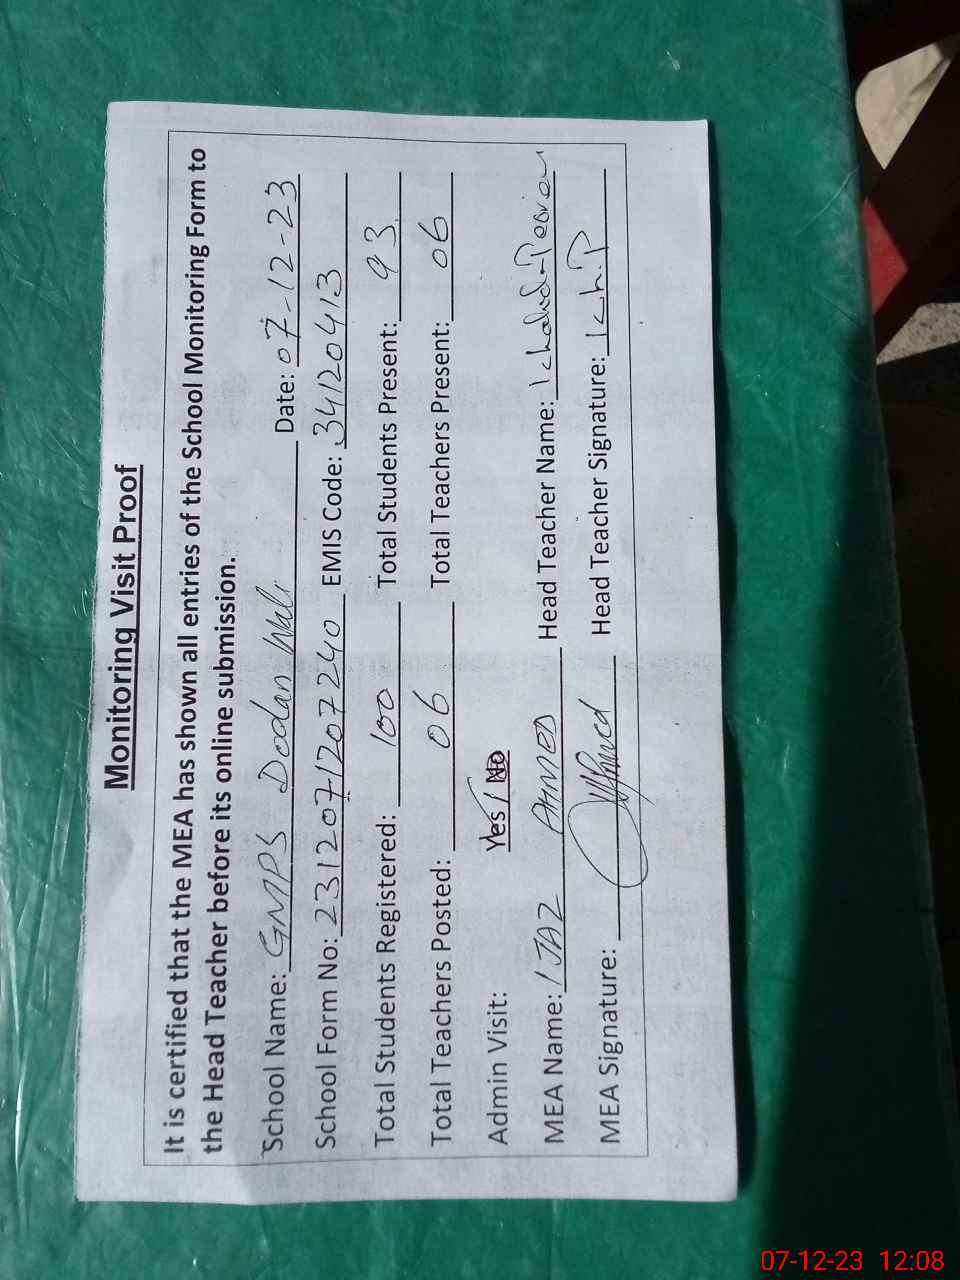 Monitoring Visit Proof
It is certified that the MEA has shown all entries of the School Monitoring Form to
the Head Teacher before its online submission.
School Name: GMPS Dodan Wali Date: 07-12-23
School Form No: 231207-1207240 EMIS Code: 34120413
Total Students Registered: 100 Total Students Present: 93
Total Teachers Posted: 06 Total Teachers Present: 06
Admin Visit: Yes / No
MEA Name: IJAZ AHMED Head Teacher Name:
MEA Signature: Head Teacher Signature: Kh.P
07-12-23 12:08